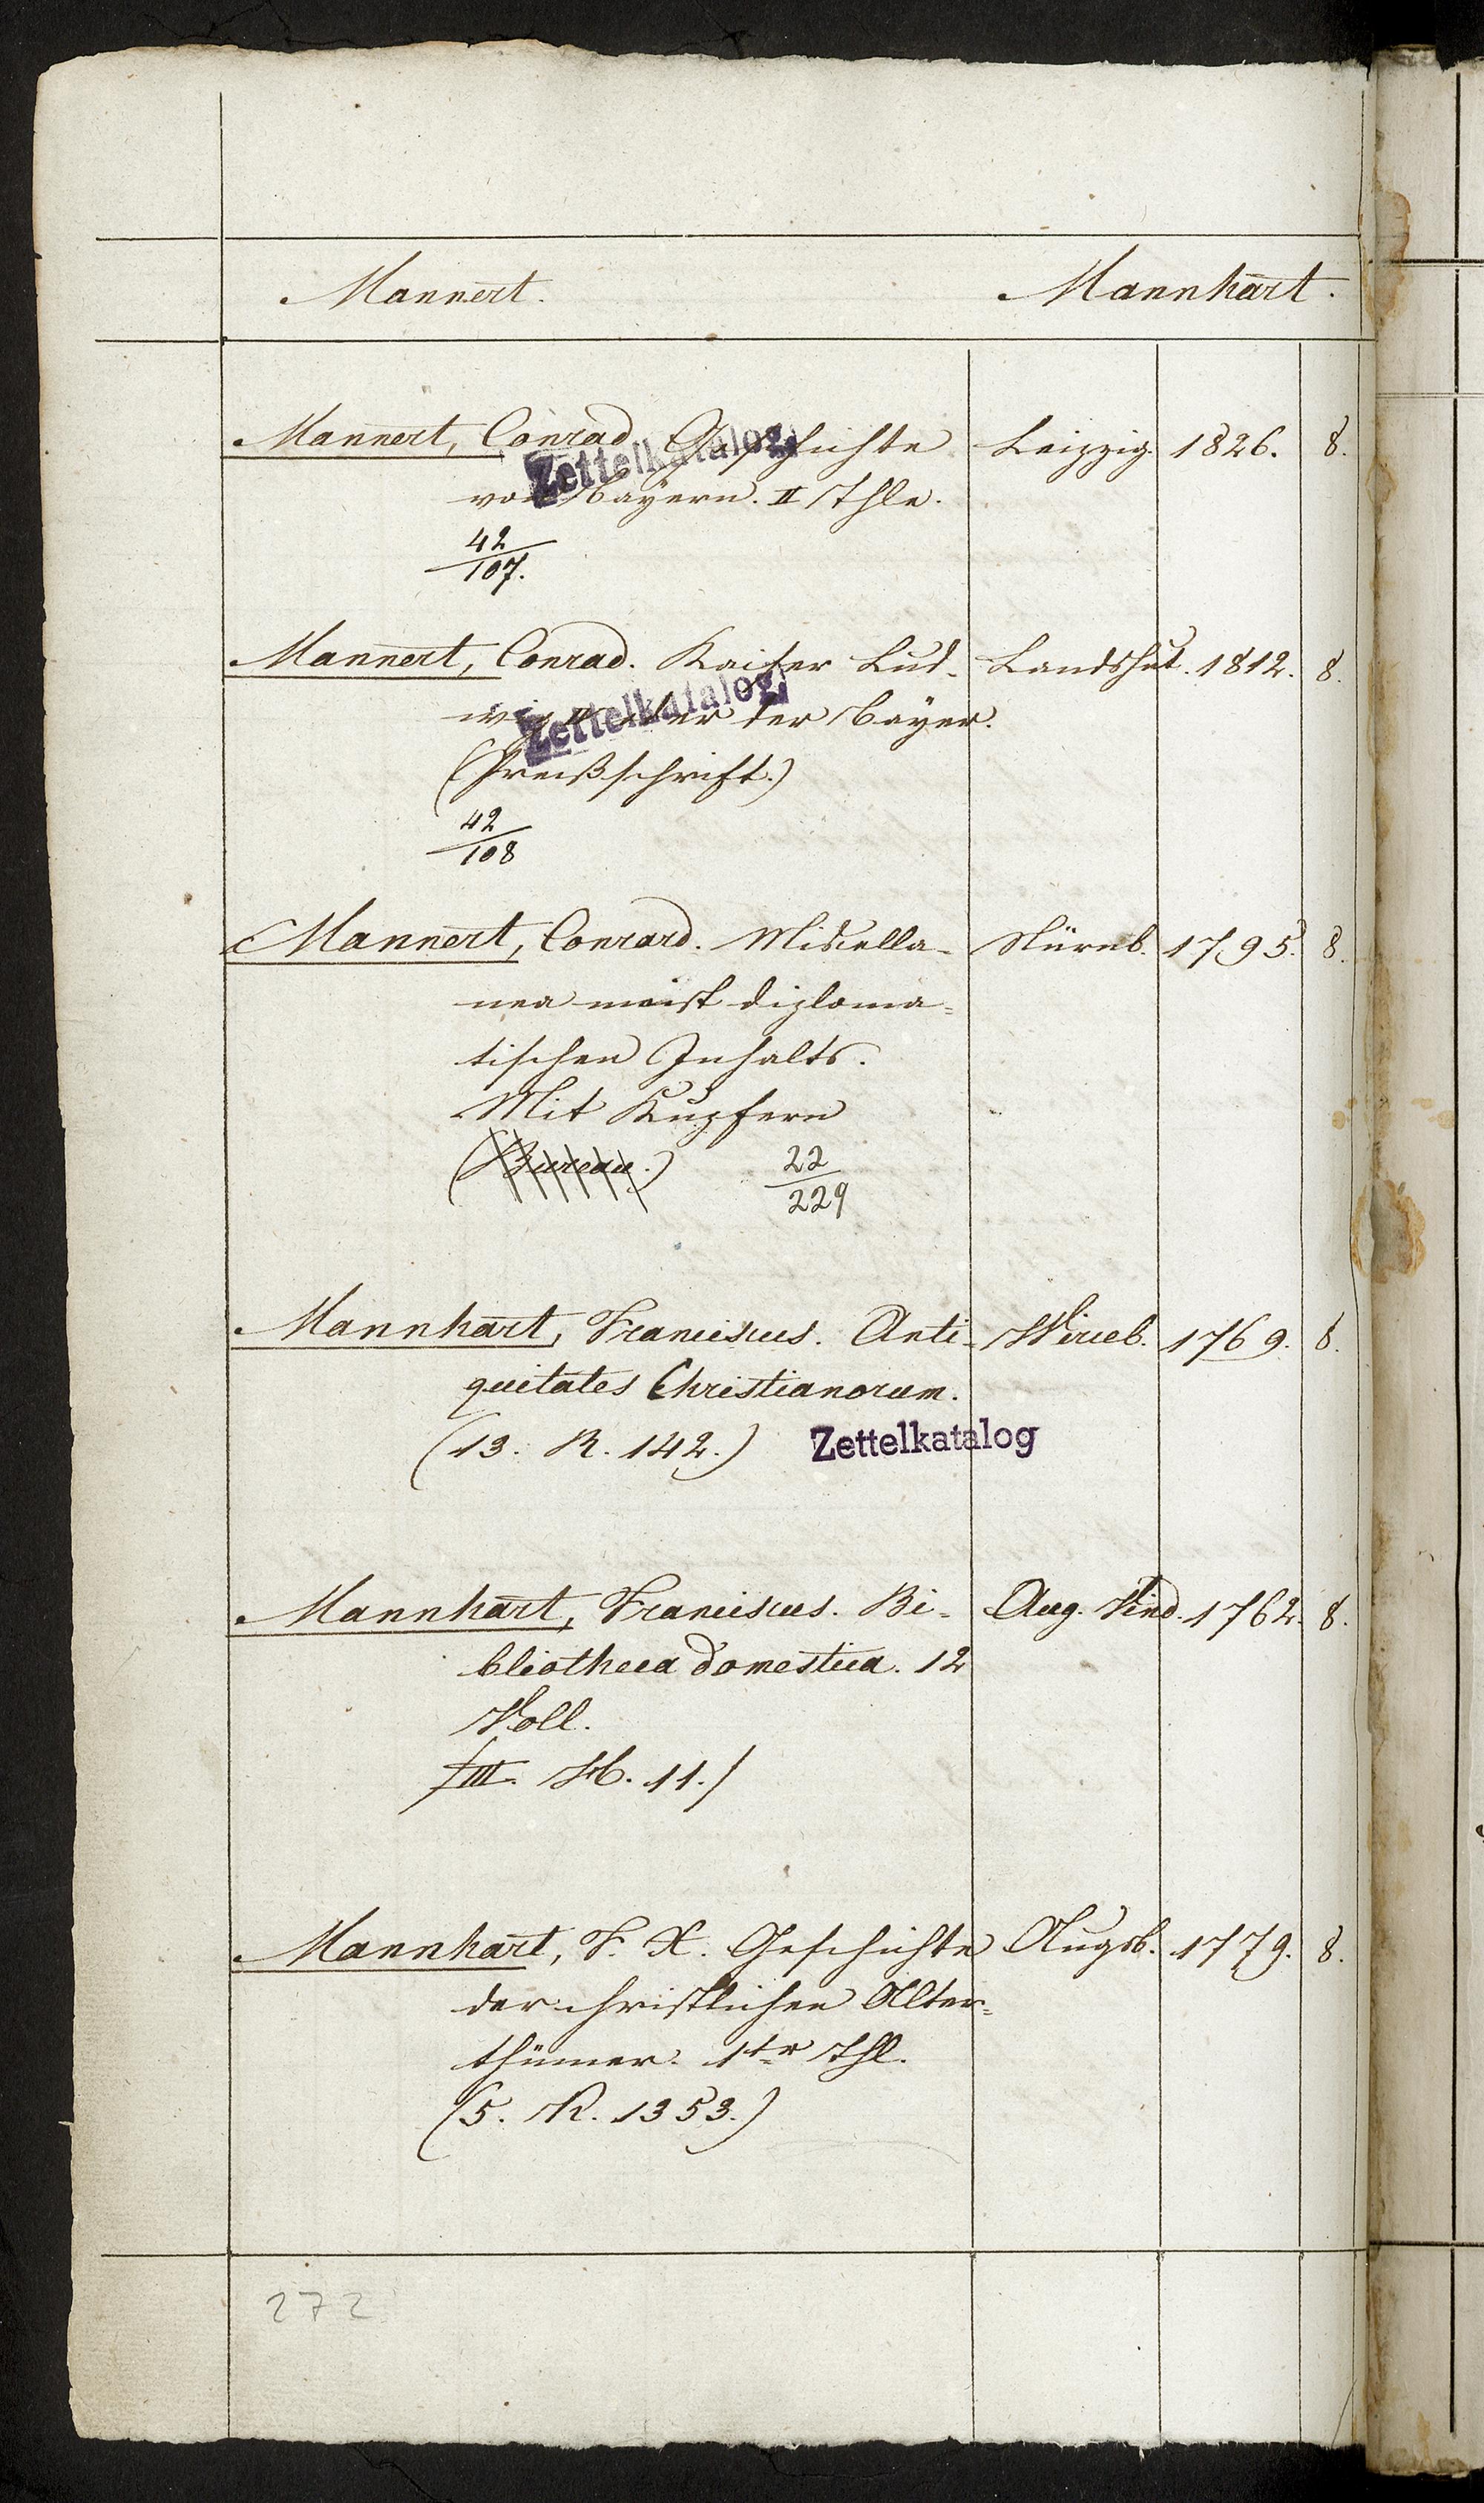 Mannert. Mannhart.
Mannert, Conrad. Geschichte Leipzig. 1826. 8.
Zettelkatalog
von Bayern. II Thle.
42
107.
Mannert, Conrad. Kaiser Lud- Landshut. 1812. 8.
Zettelkatalog
wig IV oder der Bayer.
(Preißschrift.)
42
108
Mannert, Conrard. Miscella- Nürnb. 1795. 8.
nea meist diploma=
tischen Inhalts.
Mit Kupfern
(Bureau.) 22
229
Mannhart, Franciscus. Anti- Wirceb. 1769. 8.
quitates Christianorum.
(13. R. 142.) Zettelkatalog
Mannhart, Franciscus. Bi- Aug. Vind. 1762. 8.
bliotheca domestica. 12
Voll.
/III. H. 11./
Mannhart, F. X. Geschichte Augsb. 1779. 8.
der christlichen Alter=
thümer. 1tr Thl.
(5. R. 1353.)
272